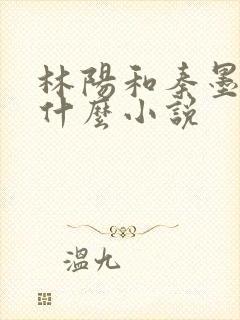 林陽和秦墨
什麼小說
溫九